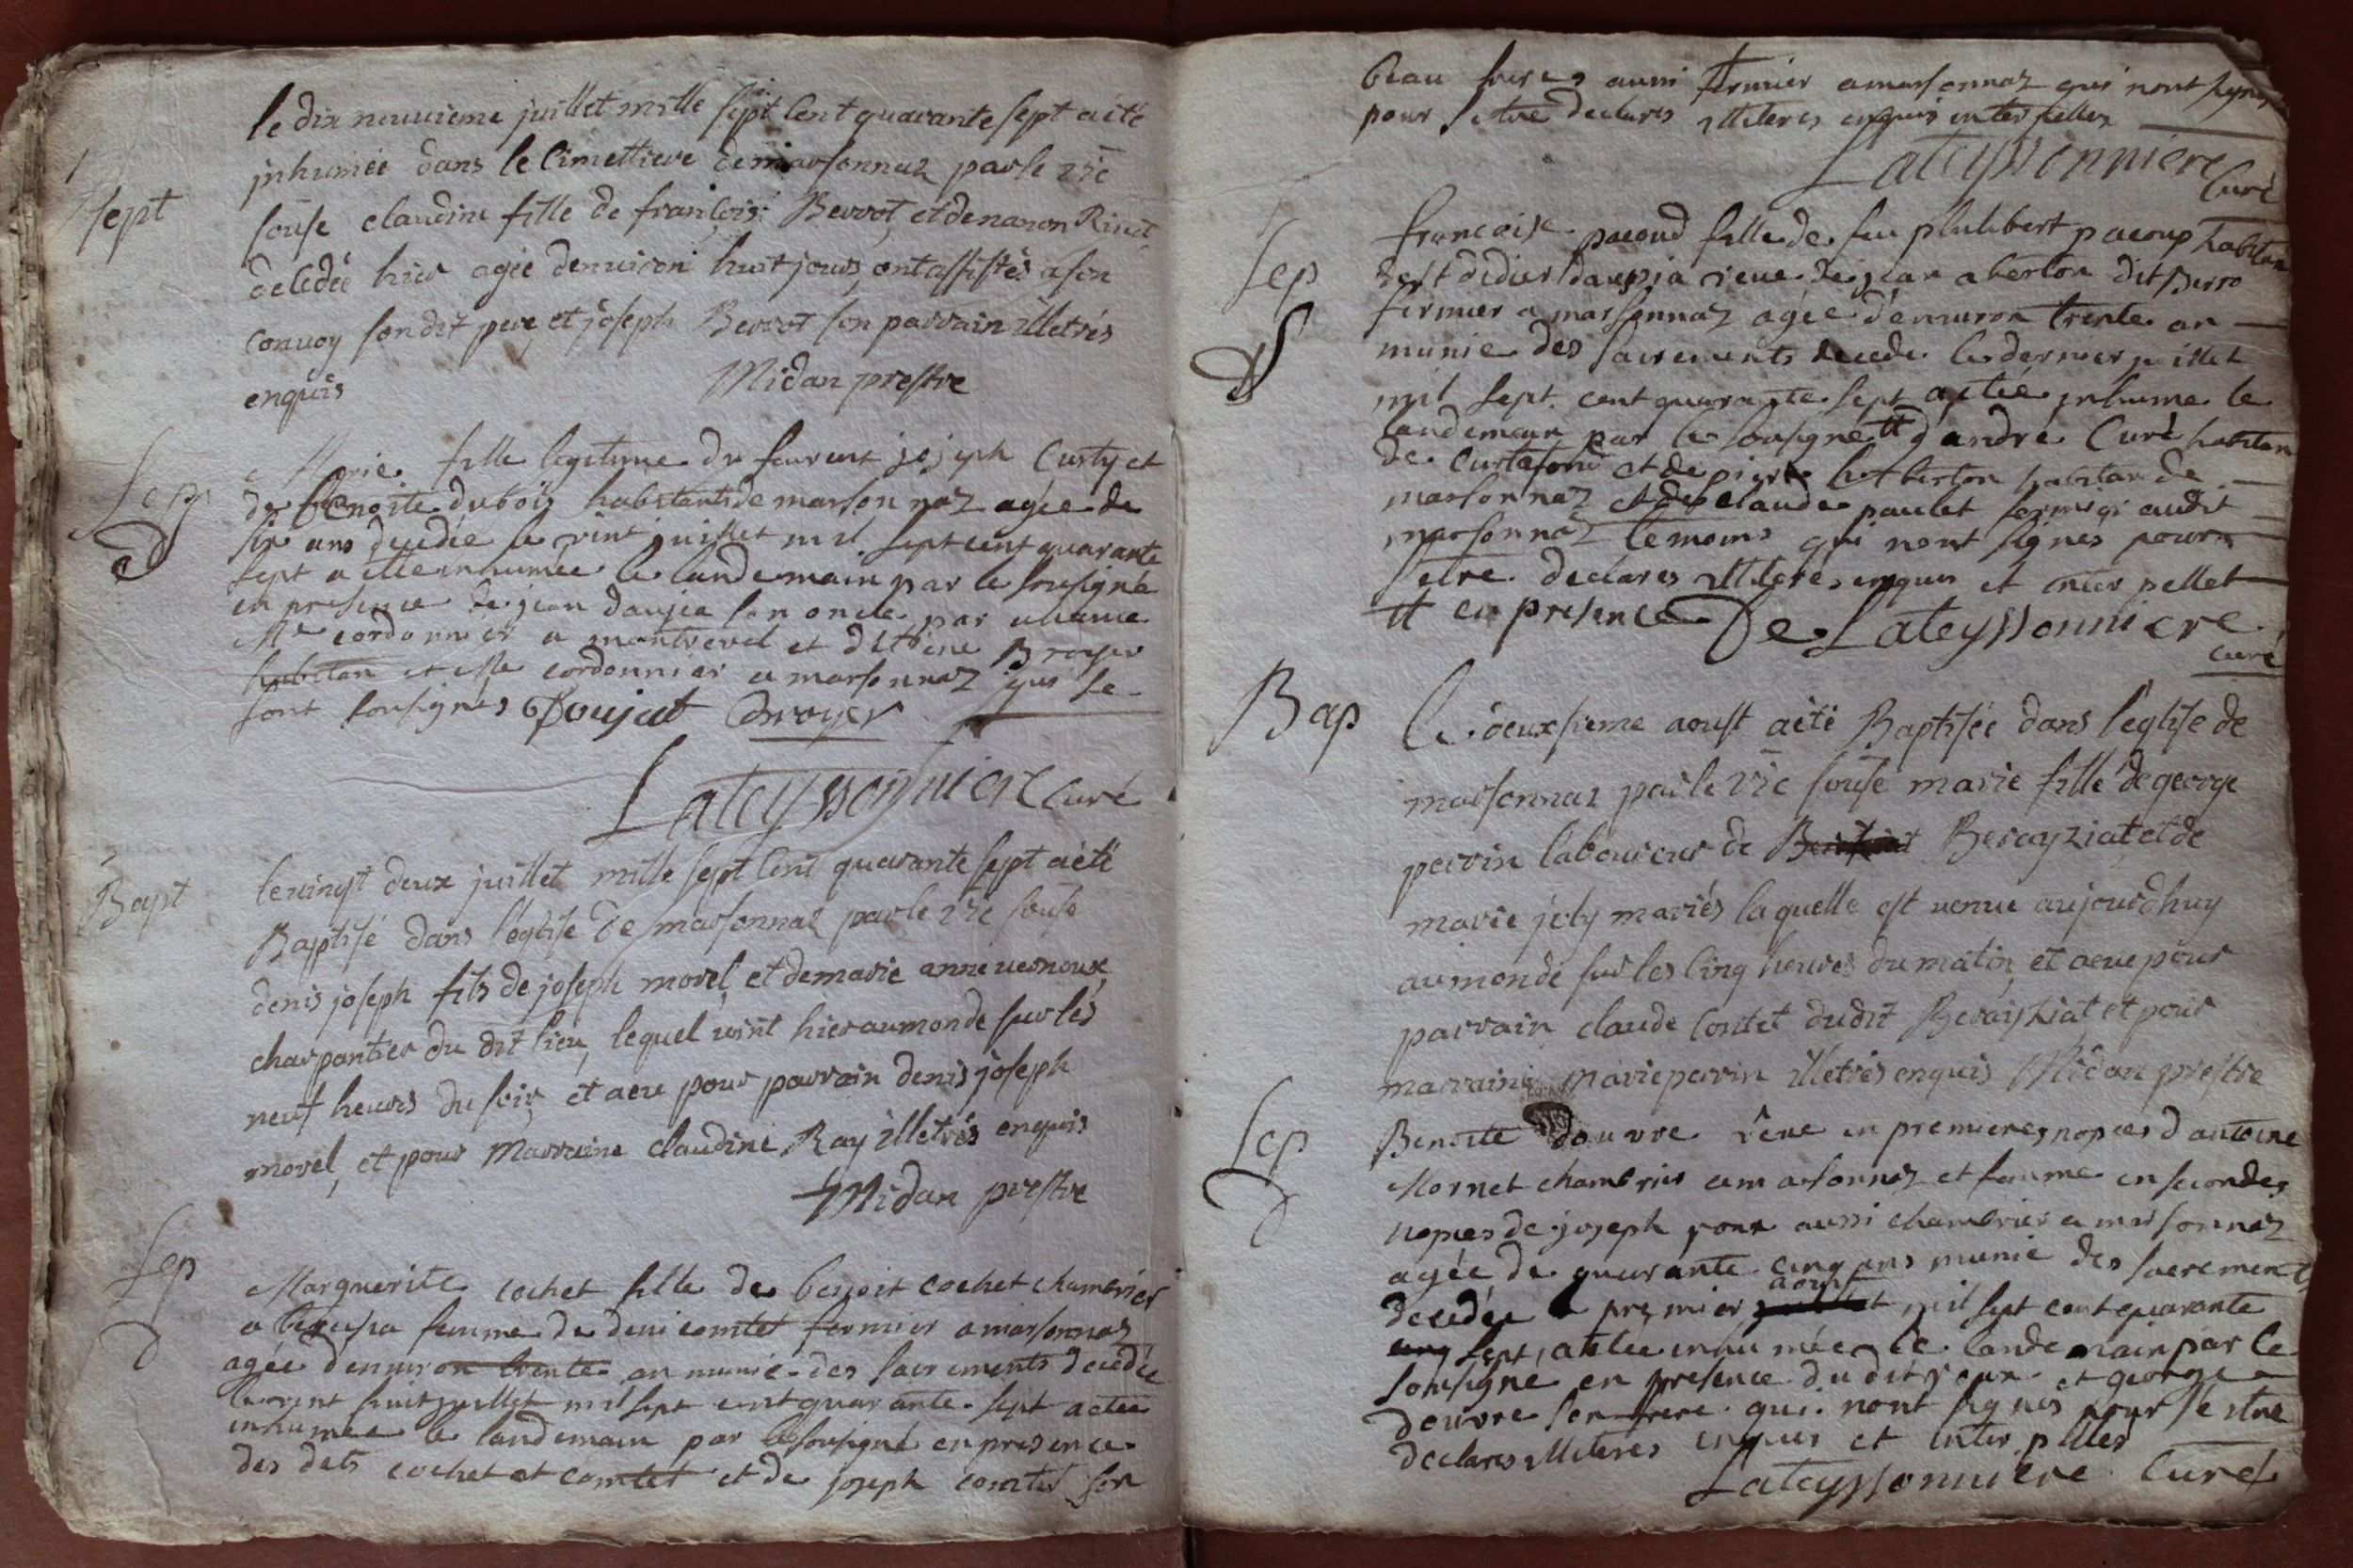 le dix neuvieme juillet mille sept cent quarante sept a été
sept
inhumée dans le Cimettiere de marsonnaz par le vic
sousé claudine fille de françois Berrot, et de nanon
decedée hier agée denviron huit jours, ont assistés a son
convoy son dit pere, et joseph Berrot son parrain illetrés
enquis Midan prestre
Sep
Marie fille legitime de joseph Custy et
de Benoite dubois habitants de marsonnaz agée de
six ans decedée le vint juillet mil sept cent quarante
sept a été inhumée le landemain par le sousigné
en presence de jean daujea son oncle par
Me cordonnier a montrevel et d Broyer
habitan et Me cordonnier a marsonnaz qui se
sont sousignés Doujat Broyer
Lateyssonniere Curé
Bapt
le vingt deux juillet mille sept cent quarante sept a été
Baptisé dans l'église De marsonnaz par le vic sousé
denis joseph fils de joseph morel, et de marie anne vernoux
charpantier du dit lieu, lequel vint hier au monde sur les
neuf heures du soir, et a eu pour parrain denis joseph
morel, et pour Marraine claudine Ray illetrés enquis
Midan prestre
Sep
Marguerite cochet fille de benoit cochet chambrier
a femme de deni comtet fermier a marsonnaz
agée d'environ trente an munie des sacrements decedée
le vint huit juillet mil sept cent quarante sept a etée
inhumée le landemain par le sousigné en presence
des dets cochet et comtet et de joseph comtet son
beau frere aussi fermier a marsonnaz qui nont signés
pour s'etre declarés illiteres enquis interpelles
Lateyssonniere
Curé
Sep
francoise pacoud fille de feu philibert pacoup habitan
de st didier daussia veuve de jean aberton dit Berro
fermier a marsonnaz agée d'environ trente an
munie des sacrements decede le dernier juillet
mil sept cent quarante sept a etée inhume le
landemain par le sousigne tt d'andré Curé habitan
de Curtafond et de pierre berton habitan de
marsonnaz et de claude paulet fermier audit
marsonnaz temoins qui nont signés pour
s'etre declarés illiterés enquis et interpellet
tt en presence De Lateyssonniere
curé
Bap
Le deuxsieme aoust a été Baptisée dans l'eglise de
marsonnaz par le vic sousé marie fille de george
perrin laboureur de Berayziat et de
marie joly mariés laquelle est venue aujourdhuy
au monde sur les cinq heures du matin, et a eue pour
parrain claude Contet dudit Berayziat et pour
marraine marie perrin illetrés enquis Midan prestre
Sep
Benoite Douvre veve en premieres nopces d antoine
Mornet chambrier a marsonnaz et femme en secondes
nopces de joseph roux aussi chambrier a marsonnaz
agée de quarante cinq ans munie des sacrements
aoust
decedée le premier juillet mil sept cent quarante
cinq sept, a etée inhumée le landemain par le
sousigne en presence du dit roux et george
douvre son frere qui nont signés pour s'estre
declares illiteres enquis et interpelles
Lateyssonniere Curé